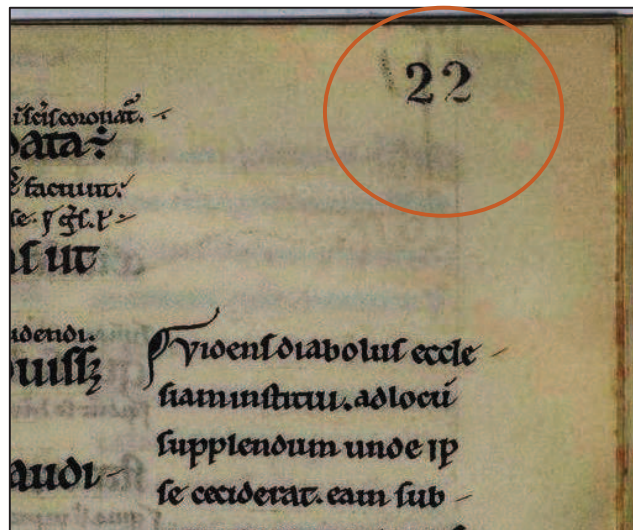 22
coronat̄.
ata
faciunt.
ſ ut
dendi.
uiſſꝫ
audi-
Videnſ diaboluſ eccle-
ſiam inſtitui. ad locū
ſupplendum unde ip
ſe ceciderat. eam ſub-